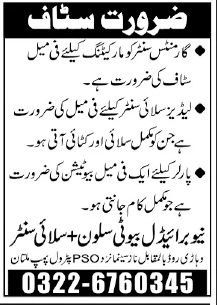 ضرورت سٹاف
گارمنٹس سنٹر کو مارکیٹنگ کیلئے فی میل
سٹاف کی ضرورت ہے۔
لیڈیز سلائی سنٹر کیلئے فی میل کی ضرورت
ہے جن کو مکمل سلائی اور کٹائی آتی ہو۔
پارلر کیلئے ایک فی میل بیوٹیشن کی ضرورت
ہے جو مکمل کام جانتی ہو۔
نیو برائیڈل بیوٹی سیلون + سلائی سنٹر
وہاڑی روڈ بالمقابل نارتھ پوائنٹ نزد PSO پٹرول پمپ ملتان
0322-6760345